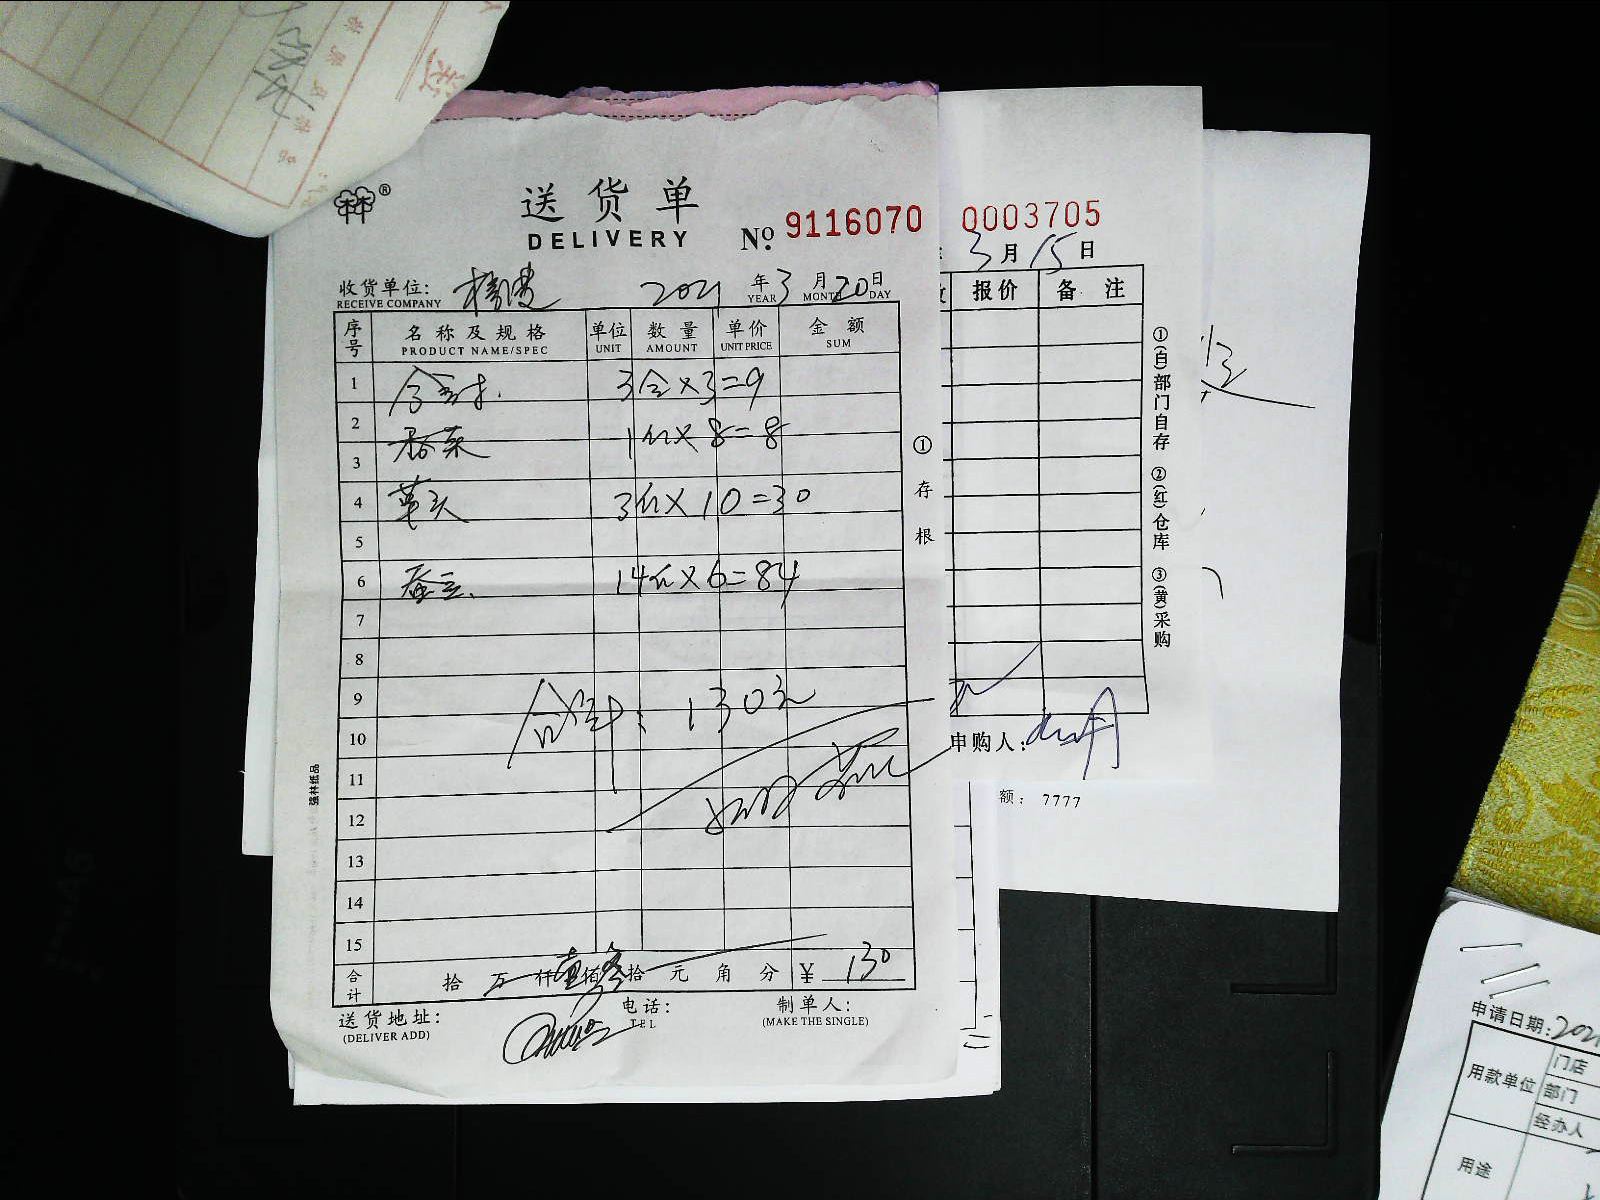 林®
送货单
DELIVERY
№ 9116070
收货单位:
RECEIVE COMPANY
2021 年 3 月 20 日
YEAR MONTH DAY
序号 名称及规格 单位 数量 单价 金额
PRODUCT NAME/SPEC UNIT AMOUNT UNIT PRICE SUM
1 3合×3=9
2 1斤×8=8
3
4 草头 3斤×10=30
5
6 蚕豆 14斤×6=84
7
8
9 合计:130元
10
11
12
13
14
15
合计 拾 万 仟 壹佰 叁拾 元 角 分 ¥ 130
送货地址:
(DELIVER ADD)
电话:
TEL
制单人:
(MAKE THE SINGLE)
①存根
强林纸品
0003705
3月15日
报价 备注
①(白)部门自存 ②(红)仓库 ③(黄)采购
申购人:
额: 7777
申请日期:2021
用款单位 门店
部门
经办人
用途